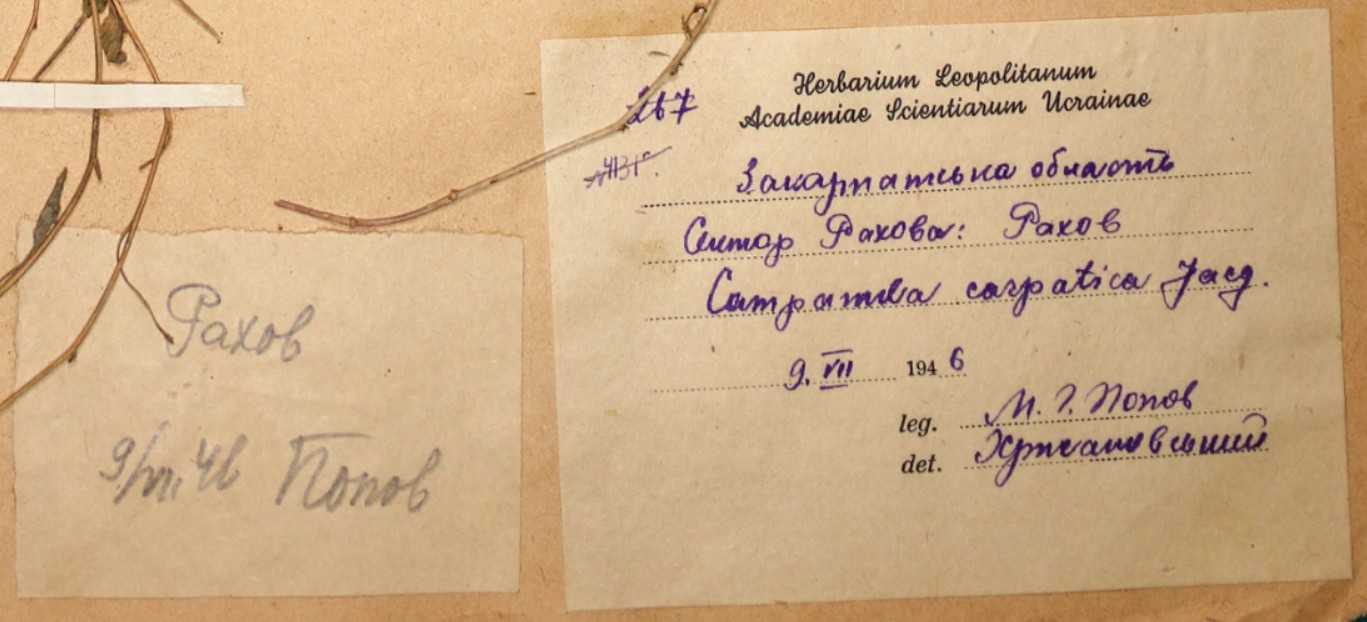 Рахов
9/VII 46 Попов
267
Herbarium Leopolitanum
Academiae Scientiarum Ucrainae
Закарпатська область
Сектор Рахова: Рахов
Campanula carpatica Jacq.
9. VII 1946
leg. М. Г. Попов
det.